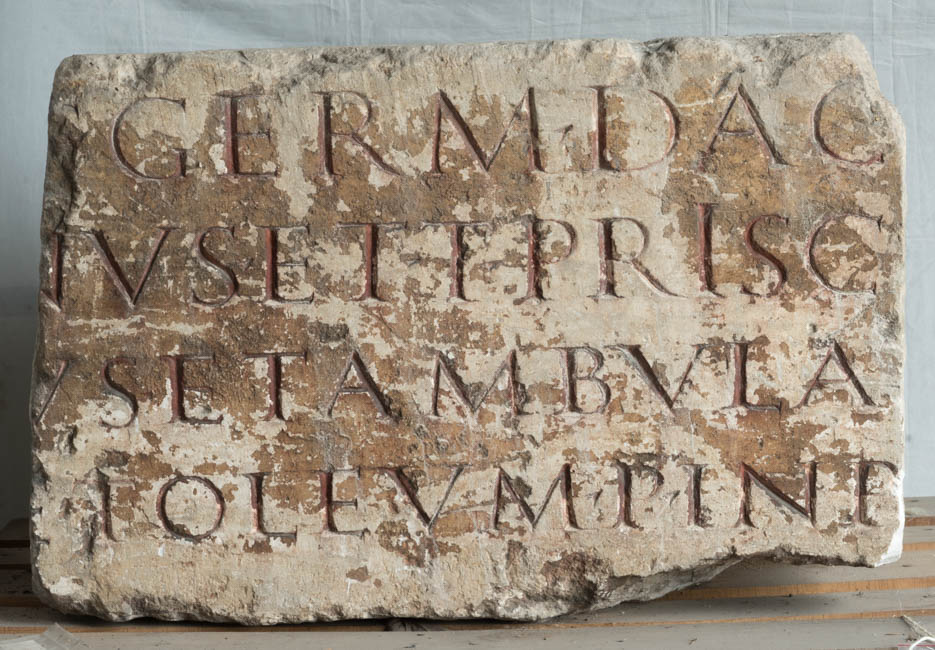 GERM·DAC
IVS ET T·PRISC
VS ET AMBVLA
T OLEVM·P·IN P